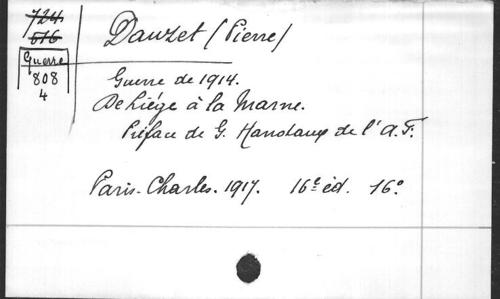 724
616
Guerre
808
4
Dauzet (Pierre)
Guerre de 1914.
De Liége à la Marne.
Préface de G. Hanotaux de l'A.F.
Paris. Charles. 1917. 16e éd. 16°